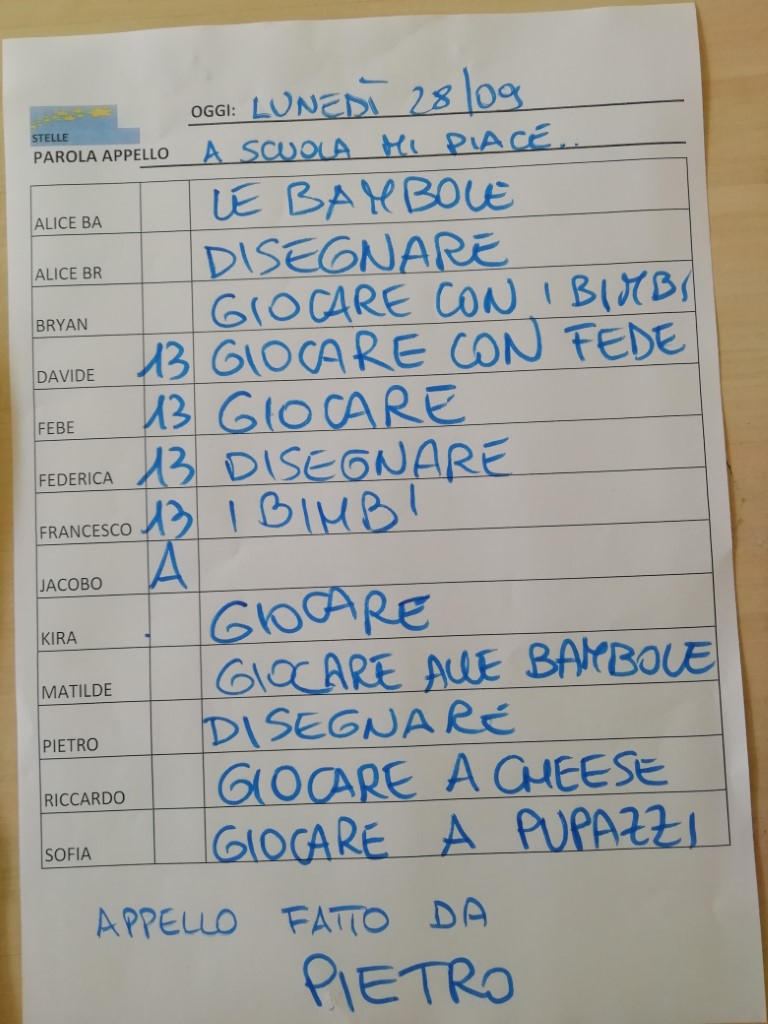 OGGI: LUNEDÌ 28/09
STELLE
PAROLA APPELLO A SCUOLA MI PIACE..
ALICE BA LE BAMBOLE
ALICE BR DISEGNARE
BRYAN GIOCARE CON I BIMBI
DAVIDE 13 GIOCARE CON FEDE
FEBE 13 GIOCARE
FEDERICA 13 DISEGNARE
FRANCESCO 13 I BIMBI
JACOBO A
KIRA . GIOCARE
MATILDE GIOCARE ALLE BAMBOLE
PIETRO DISEGNARE
RICCARDO GIOCARE A CHEESE
SOFIA GIOCARE A PUPAZZI
APPELLO FATTO DA
PIETRO